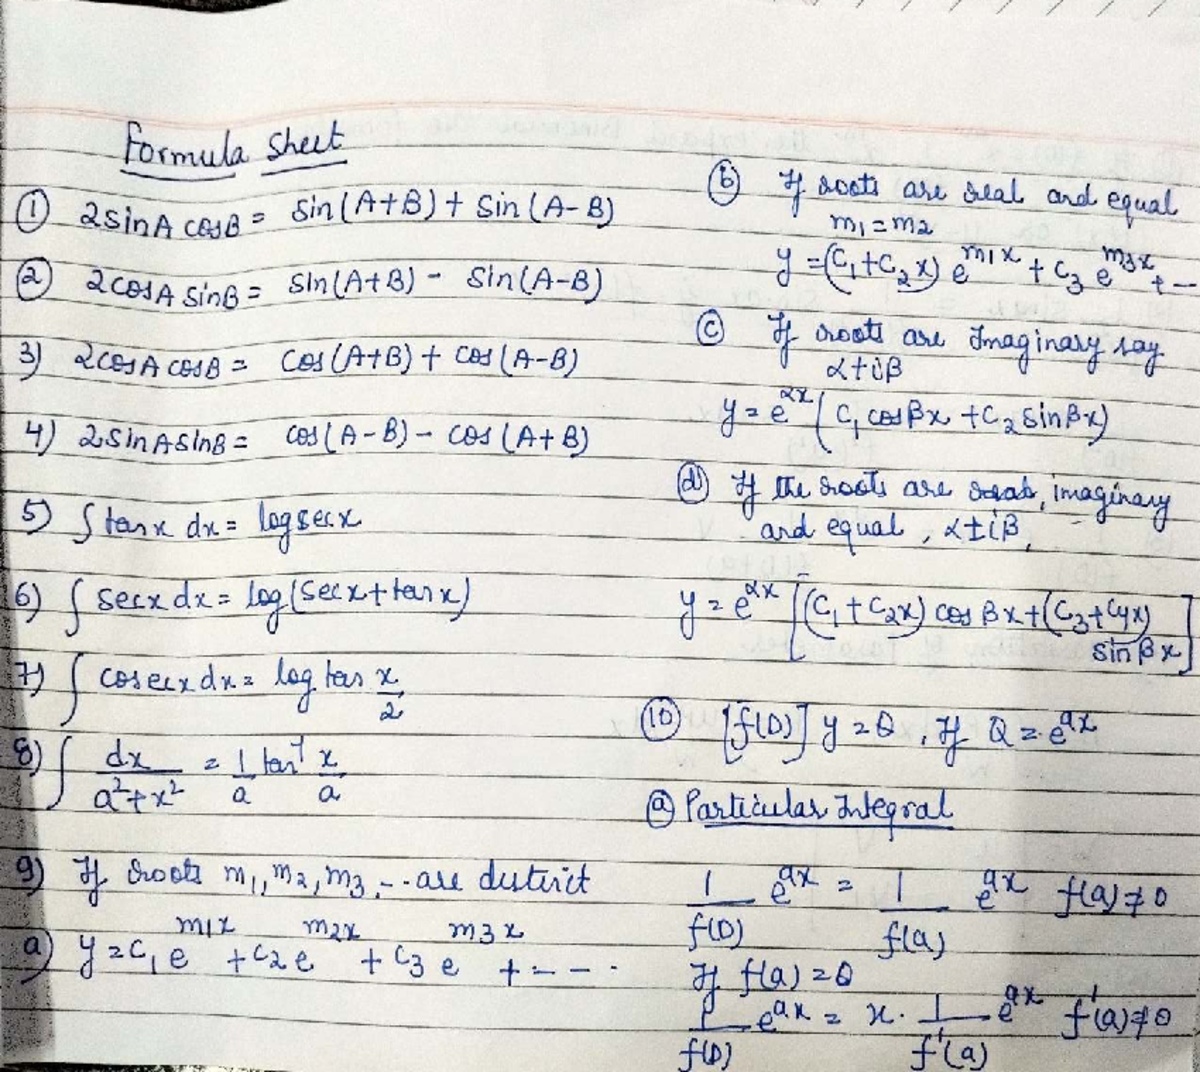 Formula Sheet
① 2sinA cosB = Sin(A+B) + Sin(A-B)
② 2cosA sinB = Sin(A+B) - Sin(A-B)
3) 2cosA cosB = cos(A+B) + cos(A-B)
4) 2sinAsinB = cos(A-B) - cos(A+B)
5) ∫tanx dx = logsecx
6) ∫ secx dx = log(secx+tanx)
7) ∫ cosecx dx = log tan x/2
8) ∫ dx/(a²+x²) = 1/a tan⁻¹ x/a
9) If roots m₁, m₂, m₃, -- are distinct
a) y = c₁ e^(m₁x) + c₂ e^(m₂x) + c₃ e^(m₃x) + ----
ⓑ If roots are real and equal
m₁ = m₂
y = (C₁+C₂x) e^(m₁x) + C₃ e^(m₃x) + --
ⓒ If roots are Imaginary say
α+iβ
y = e^(αx) (C₁ cosβx + C₂ sinβx)
ⓓ If the roots are imaginary
and equal, α±iβ,
y = e^(αx) [(C₁ + C₂x) cos βx + (C₃+C₄x)
sin βx]
⑩ [f(D)] y = Q, If Q = e^(ax)
ⓐ Particular Integral
1/f(D) e^(ax) = 1/f(a) e^(ax) f(a)≠0
If f(a) = 0
1/f(D) e^(ax) = x. 1/f'(a) e^(ax) f'(a)≠0